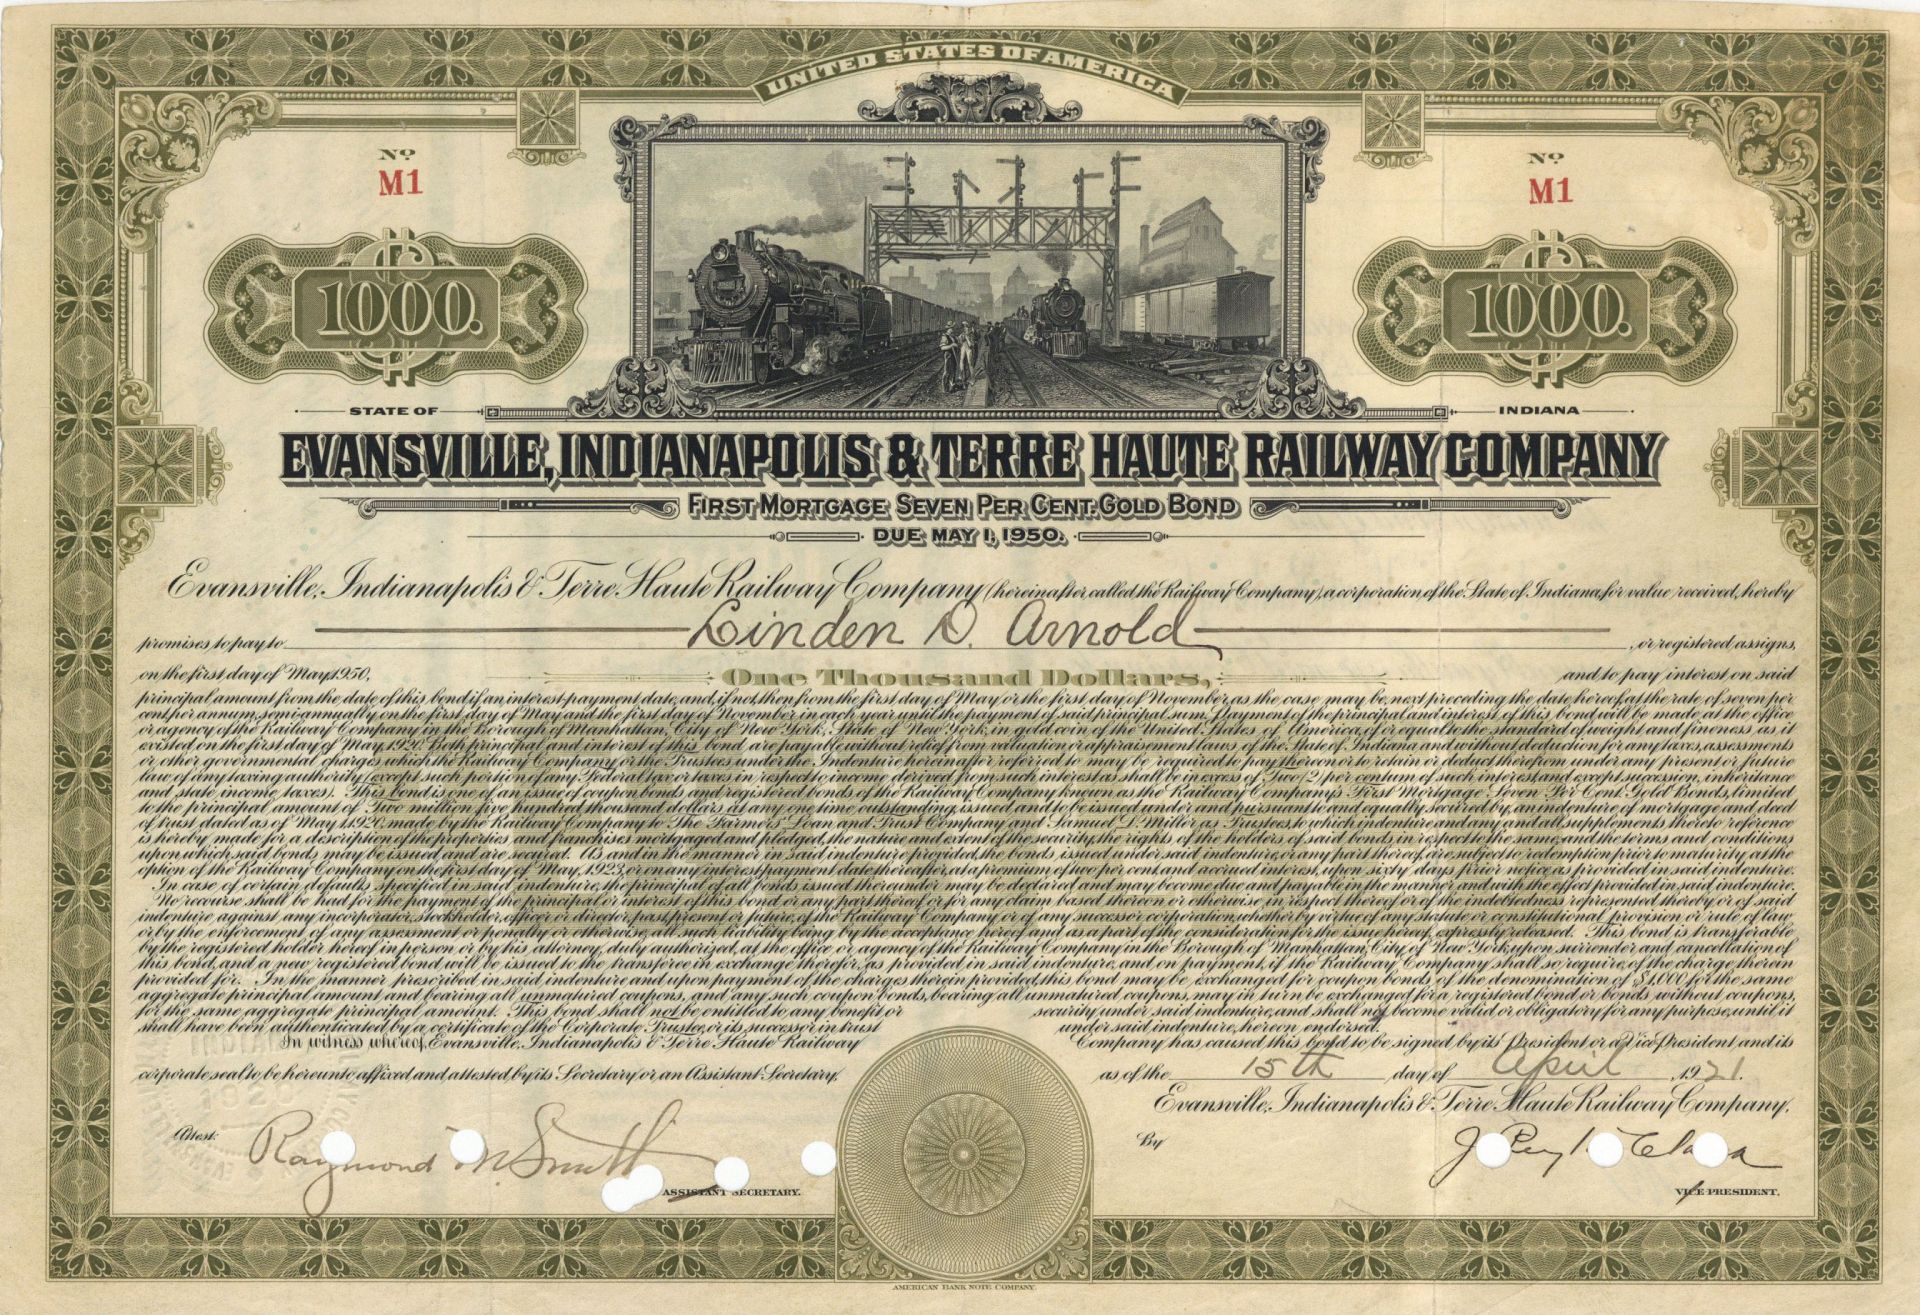 UNITED STATES OF AMERICA
No M1
No M1
1000.
1000.
STATE OF
INDIANA
EVANSVILLE, INDIANAPOLIS & TERRE HAUTE RAILWAY COMPANY
FIRST MORTGAGE SEVEN PER CENT. GOLD BOND
DUE MAY 1, 1950.
Evansville, Indianapolis & Terre Haute Railway Company (hereinafter called the Railway Company), a corporation of the State of Indiana, for value received, hereby
promises to pay to Linden D. Arnold, or registered assigns,
on the first day of May, 1950, One Thousand Dollars, and to pay interest on said
principal amount from the date of this bond if an interest payment date, and, if not, then from the first day of May or the first day of November, as the case may be, next preceding the date hereof, at the rate of seven per
cent. per annum, semi-annually on the first day of May and the first day of November in each year until the payment of said principal sum. Payment of the principal and interest of this bond will be made at the office
or agency of the Railway Company in the Borough of Manhattan, City of New York, State of New York, in gold coin of the United States of America, of or equal to the standard of weight and fineness as it
existed on the first day of May, 1920. Both principal and interest of this bond are payable without relief from valuation or appraisement laws of the State of Indiana and without deduction for any taxes, assessments
or other governmental charges which the Railway Company or the Trustees under the Indenture hereinafter referred to may be required to pay thereon or to retain or deduct therefrom under any present or future
law of any taxing authority (except such portion of any Federal tax or taxes in respect to income derived from such interest as shall be in excess of Two (2) per centum of such interest, and except succession, inheritance
and state income taxes). This bond is one of an issue of coupon bonds and registered bonds of the Railway Company known as the Railway Company's First Mortgage Seven Per Cent. Gold Bonds, limited
to the principal amount of Two million five hundred thousand dollars at any one time outstanding, issued and to be issued under and pursuant to and equally secured by, an indenture of mortgage and deed
of trust dated as of May 1, 1920, made by the Railway Company to The Farmers' Loan and Trust Company and Samuel D. Miller as Trustees, to which indenture and any and all supplements thereto reference
is hereby made for a description of the properties and franchises mortgaged and pledged, the nature and extent of the security, the rights of the holders of said bonds in respect to the same, and the terms and conditions
upon which said bonds may be issued and are secured. As and in the manner in said indenture provided, the bonds issued under said indenture, or any part thereof, are subject to redemption prior to maturity, at the
option of the Railway Company on the first day of May, 1923, or on any interest payment date thereafter, at a premium of two per cent. and accrued interest, upon sixty days prior notice as provided in said indenture.
In case of certain defaults specified in said indenture, the principal of all bonds issued thereunder may be declared and may become due and payable in the manner and with the effect provided in said indenture.
No recourse shall be had for the payment of the principal or interest of this bond or any part thereof or for any claim based thereon or otherwise in respect thereof or of the indebtedness represented thereby or of said
indenture against any incorporator, stockholder, officer or director, past, present or future, of the Railway Company or of any successor corporation, whether by virtue of any statute or constitutional provision or rule of law
or by the enforcement of any assessment or penalty or otherwise, all such liability being by the acceptance hereof and as a part of the consideration for the issue hereof, expressly released. This bond is transferable
by the registered holder hereof in person or by his attorney, duly authorized, at the office or agency of the Railway Company in the Borough of Manhattan, City of New York, upon surrender and cancellation of
this bond, and a new registered bond will be issued to the transferee in exchange therefor, as provided in said indenture, and on payment, if the Railway Company shall so require, of the charge therein
provided for. In the manner prescribed in said indenture and upon payment of the charges therein provided, this bond may be exchanged for coupon bonds of the denomination of $1,000 for the same
aggregate principal amount and bearing all unmatured coupons, and any such coupon bonds, bearing all unmatured coupons, may in turn be exchanged for a registered bond or bonds without coupons,
for the same aggregate principal amount. This bond shall not be entitled to any benefit or security under said indenture, and shall not become valid or obligatory for any purpose, until it
shall have been authenticated by a certificate of the Corporate Trustee, or its successor in trust under said indenture, hereon endorsed.
In witness whereof, Evansville, Indianapolis & Terre Haute Railway Company has caused this bond to be signed by its President or a Vice President, and its
corporate seal to be hereunto affixed and attested by its Secretary or an Assistant Secretary, as of the 15th day of April, 1921.
Evansville, Indianapolis & Terre Haute Railway Company,
Attest: Raymond M. Smith
By
ASSISTANT SECRETARY.
VICE PRESIDENT.
AMERICAN BANK NOTE COMPANY.